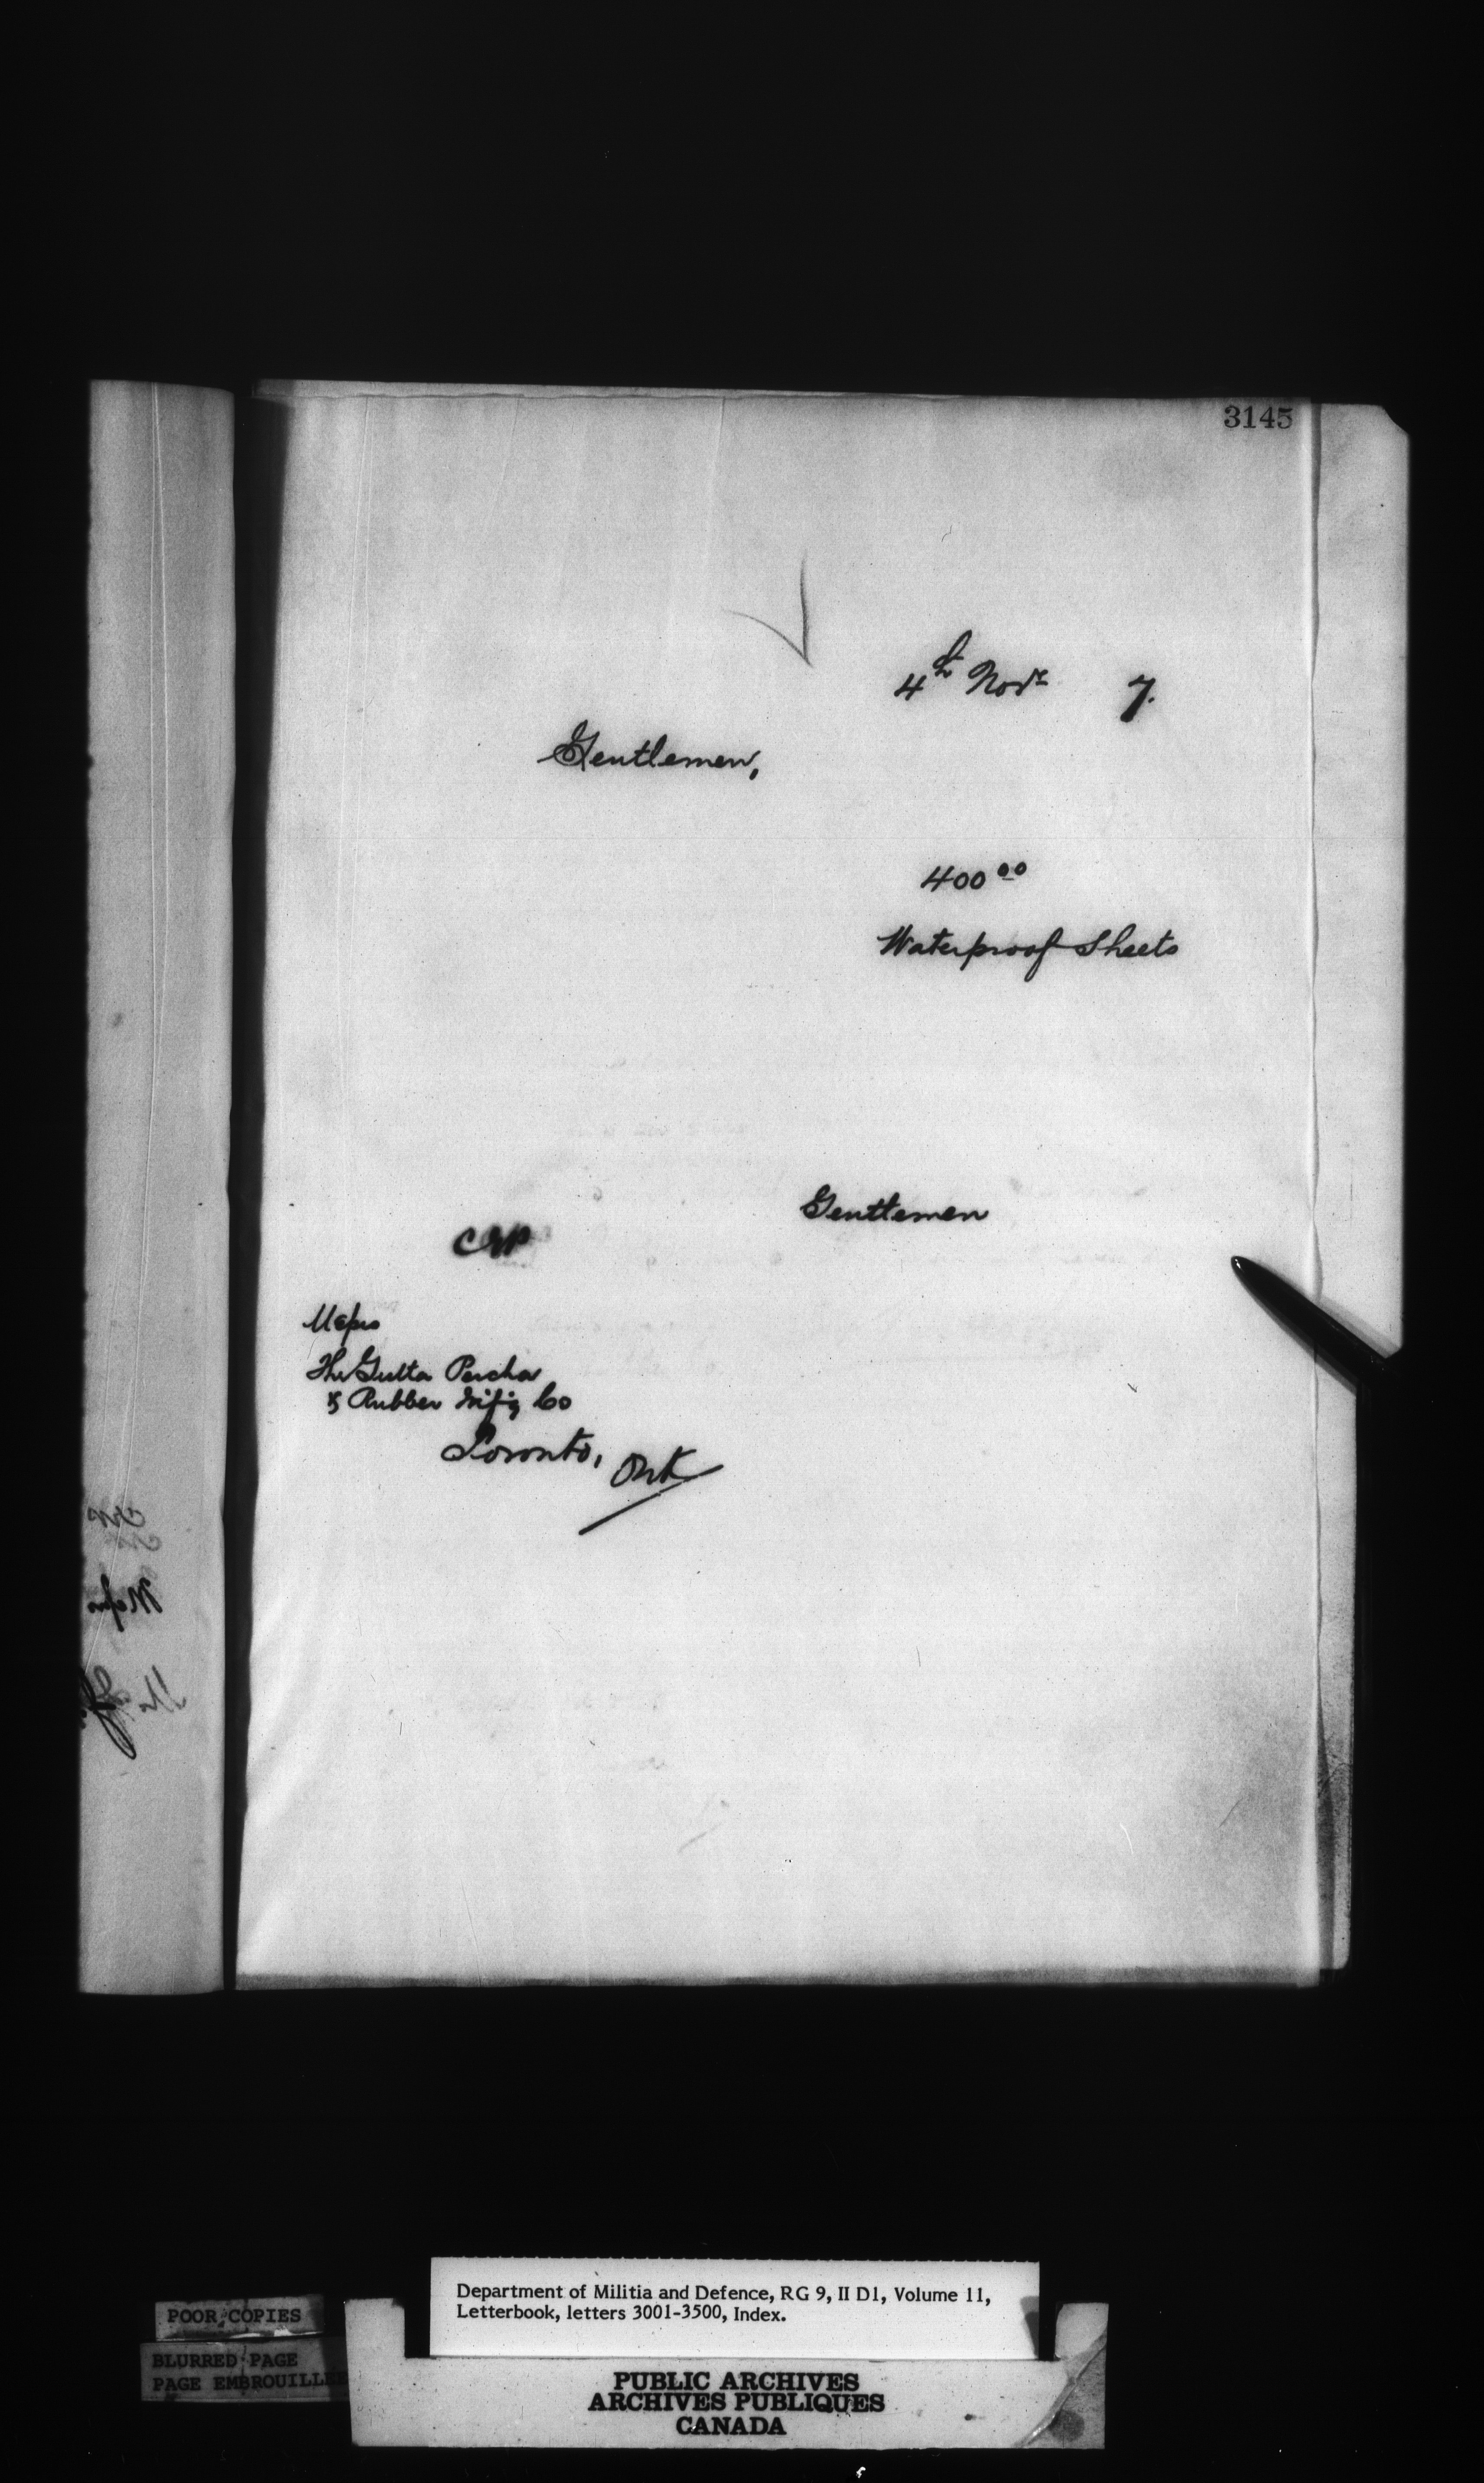 3145
4th Novr 7.
Gentlemen,
400 00
Waterproof Sheets
Gentlemen
Messrs
The Gutta Percha
& Rubber Mfg Co
Toronto, Ont
Department of Militia and Defence, RG 9, II D1, Volume 11,
Letterbook, letters 3001-3500, Index.
POOR COPIES
BLURRED PAGE
PAGE EMBROUILLEE
PUBLIC ARCHIVES
ARCHIVES PUBLIQUES
CANADA